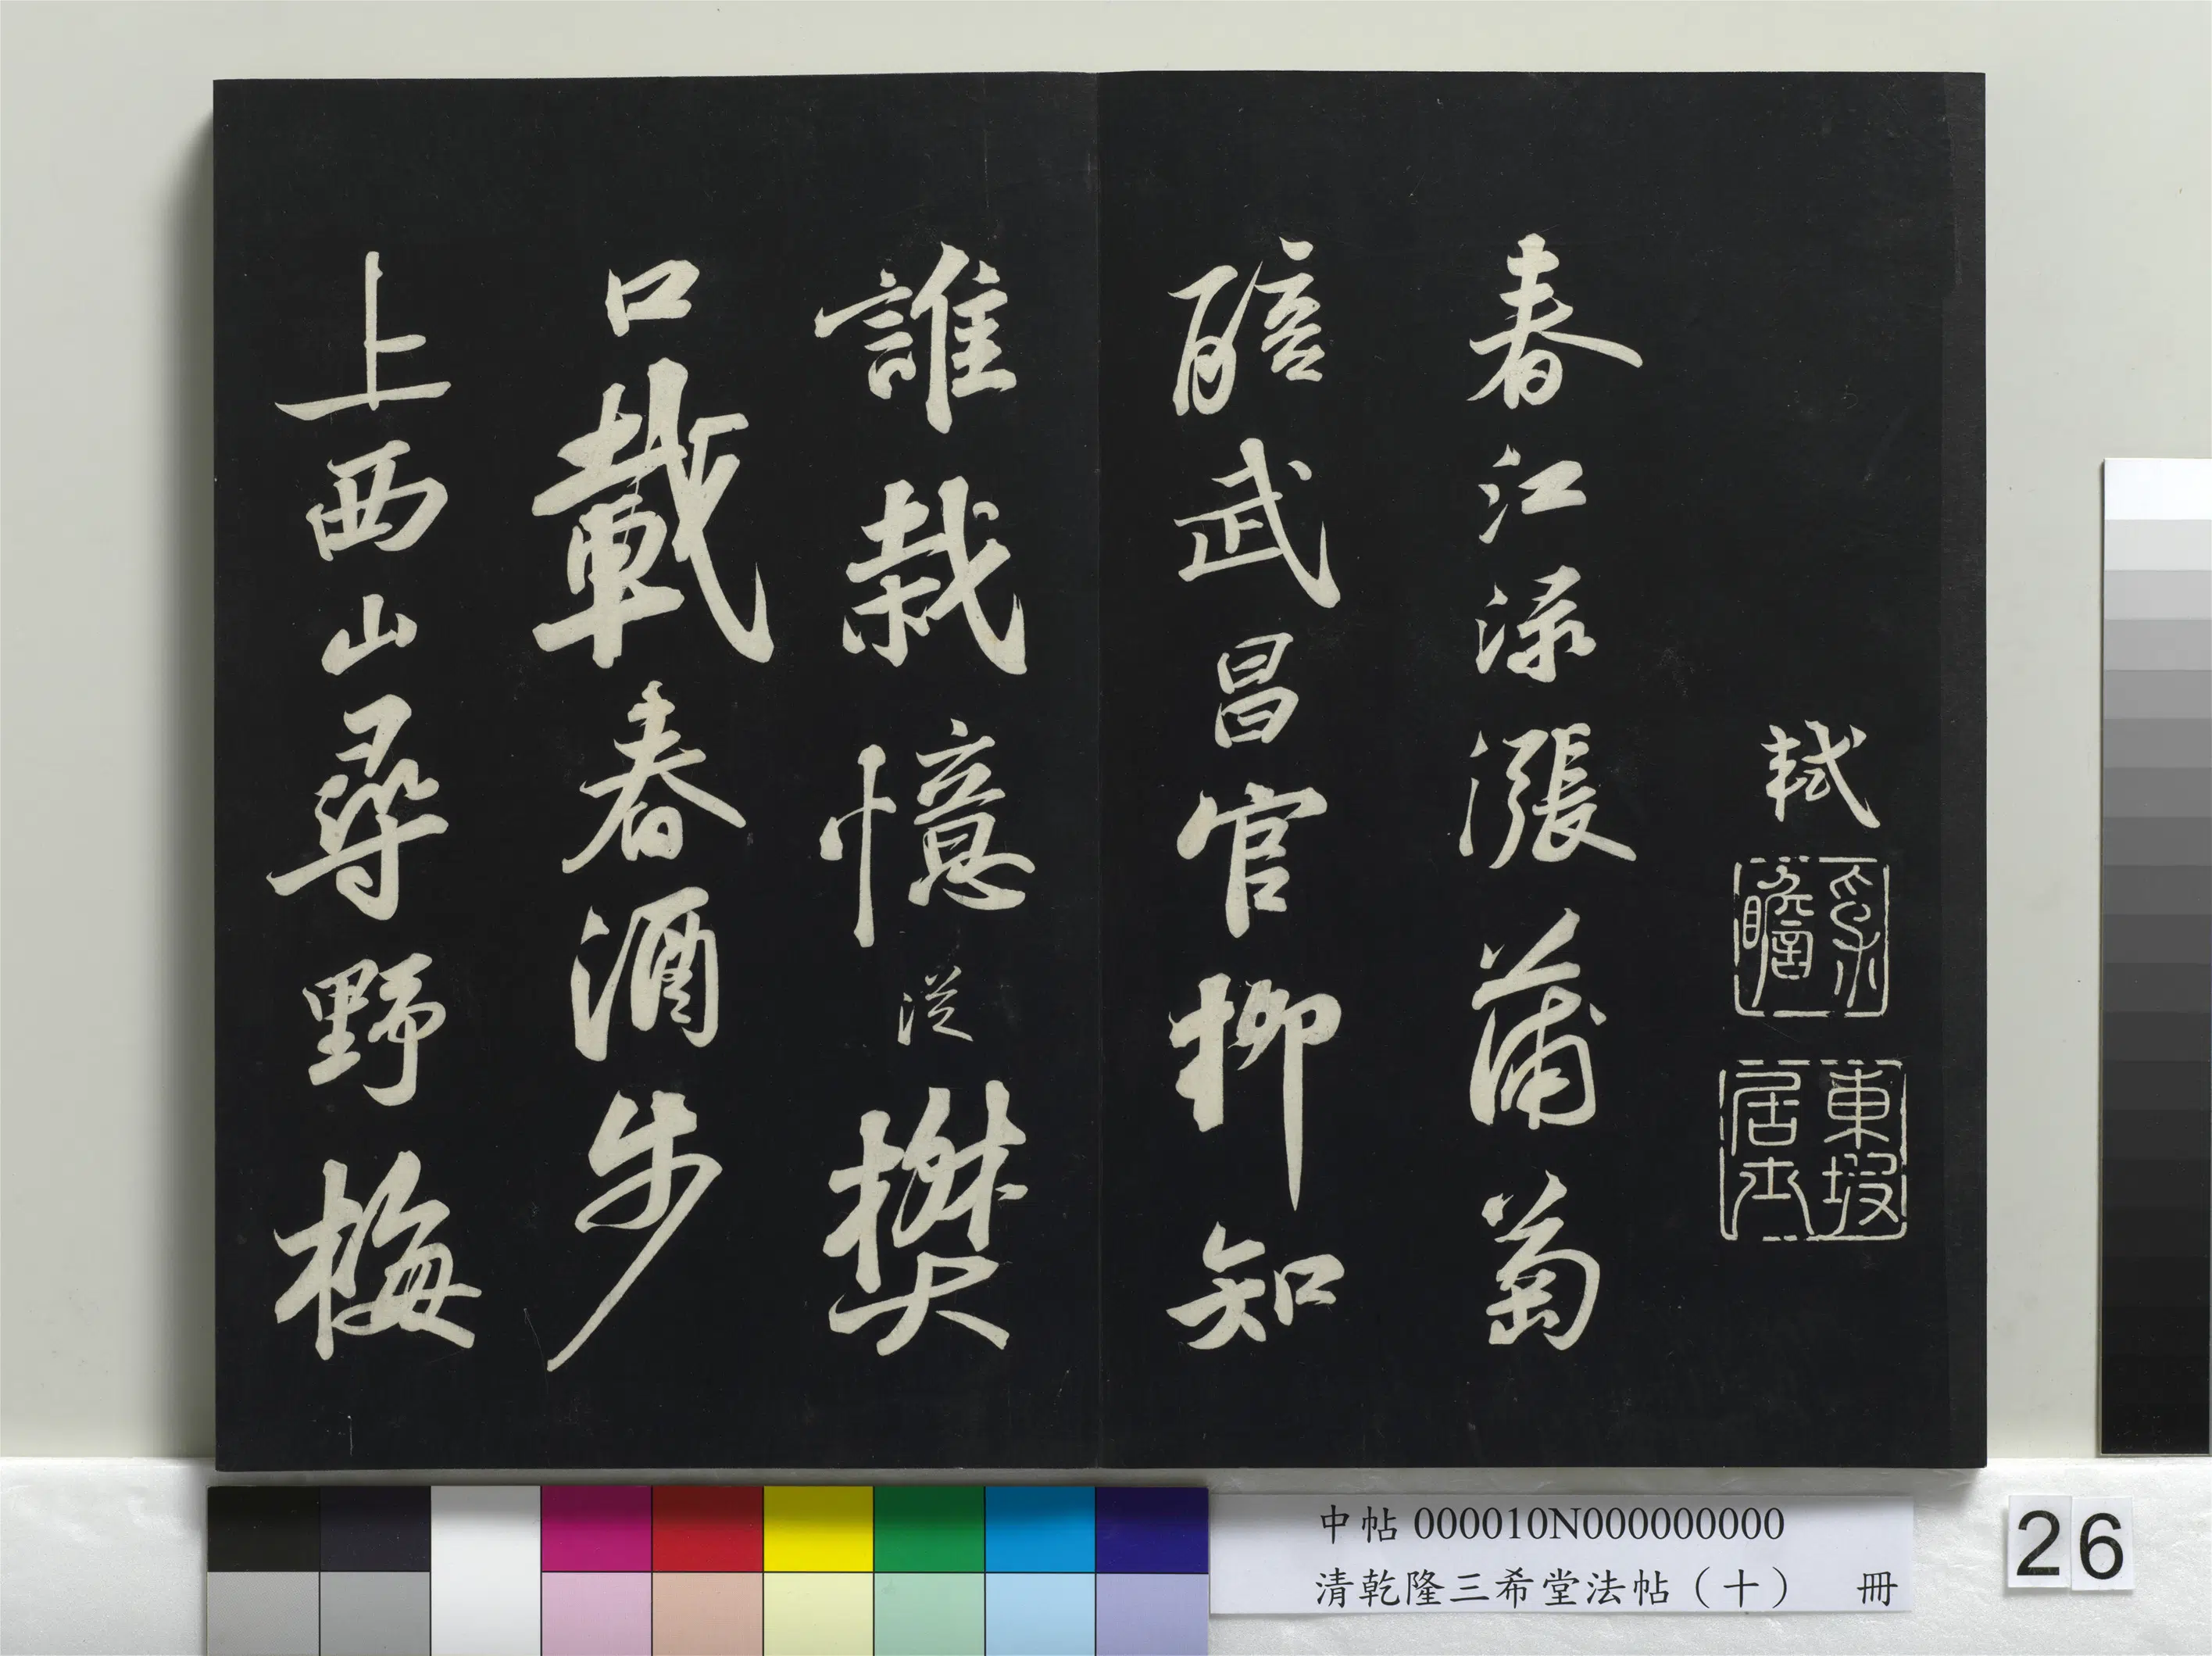 軾
東坡居士
春江渌漲蒲萄
醅武昌官柳知
誰栽憶從樊
口載春酒步
上西山尋野梅
中帖 000010N000000000
清乾隆三希堂法帖（十） 冊
26